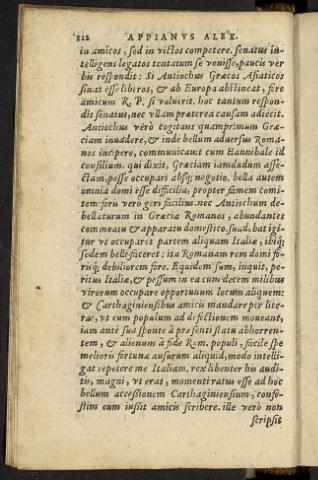 822 APPIANVS ALEX.
in amicos, sed in victos competere. senatus in-
telligens legatos tentatum se venisse, paucis ver
bis respondit: Si Antiochus Græcos Asiaticos
sinat esse liberos, & ab Europa abstineat, fore
amicum R. P. si voluerit. hoc tantum respon-
dit senatus, nec vllam præterea causam adiecit.
Antiochus verò cogitans quamprimùm Græ-
ciam inuadere, & inde bellum aduersus Roma-
nos incipere, communicat cum Hannibale id
consilium. qui dixit, Græciam iamdudum affe-
ctam, posse occupari absq; negotio. bella autem
omnia domi esse difficilia, propter famem comi-
tem: foris verò geri facilius. nec Antiochum de-
bellaturum in Græcia Romanos, abundantes
commeatu & apparatu domestico. suadebat igi-
tur vt occuparet partem aliquam Italiæ, ibiq;
sedem belli faceret: ita Romanam rem domi fo-
risq; debiliorem fore. Equidem sum, inquit, pe-
ritus Italiæ, & possum in ea cum decem milibus
virorum occupare opportunum locum aliquem:
& Carthaginensibus amicis mandare per lite-
ras, vt eum populum ad defectionem moueant,
iam antè sua sponte à præsenti statu abhorren-
tem, & alienum à fide Rom. populi, facile spe
melioris fortunæ ausurum aliquid, modo intelli-
gat repetere me Italiam. rex libenter his audi-
tis, magni, vt erat, momenti ratus esse ad hoc
bellum accessionem Carthaginensium, confe-
stim eum iussit amicis scribere. ille verò non
scripsit